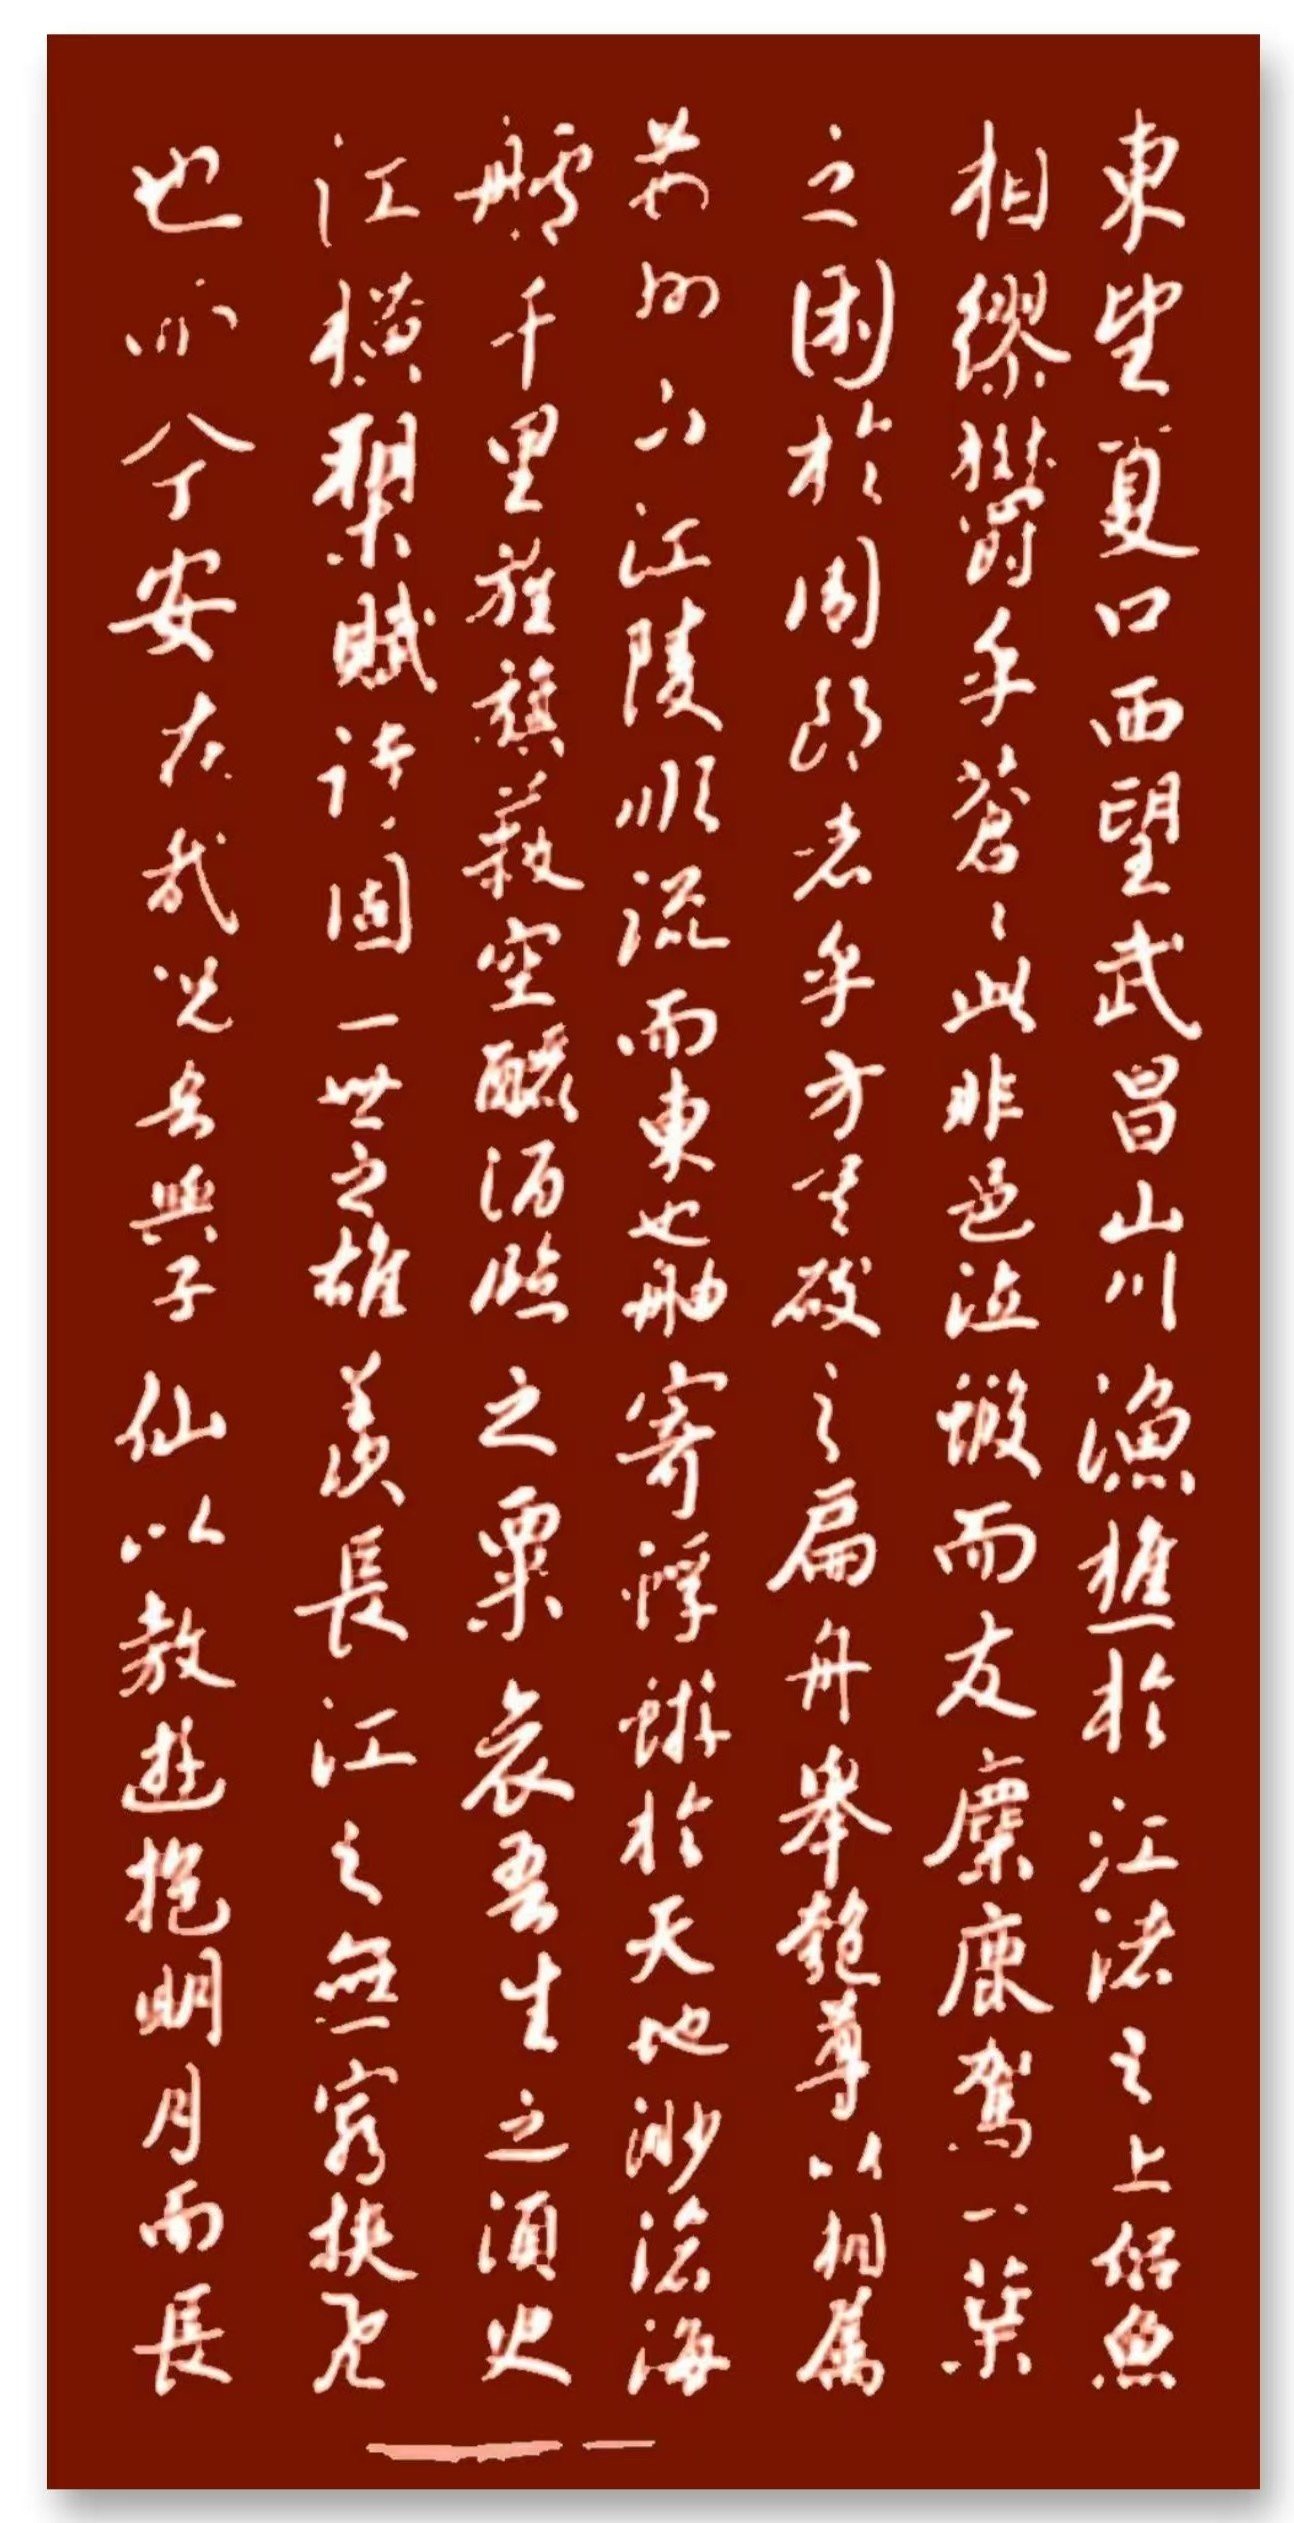 東望夏口西望武昌山川漁樵於江渚之上侶魚
相繆鬱乎蒼〻此非孟德蝦而友麋鹿駕一葉
之困於周郎者乎方其破之扁舟舉匏尊以相屬
荊州下江陵順流而東也舳寄浮蝣於天地渺滄海
艫千里旌旗蔽空釃酒臨之粟哀吾生之須臾
江橫槊賦詩固一世之雄羨長江之無窮挾飛
也而今安在哉況吾與子仙以遨遊抱明月而長
一